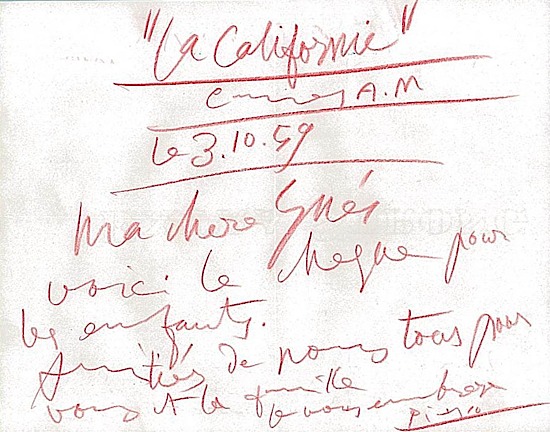 "La Californie"
Cannes A.M
le 3.10.59
Ma chere Inés
voici le cheque pour
les enfants.
Amitiés de nous tous pour
vous et la famille
Je vous embrasse
Picasso